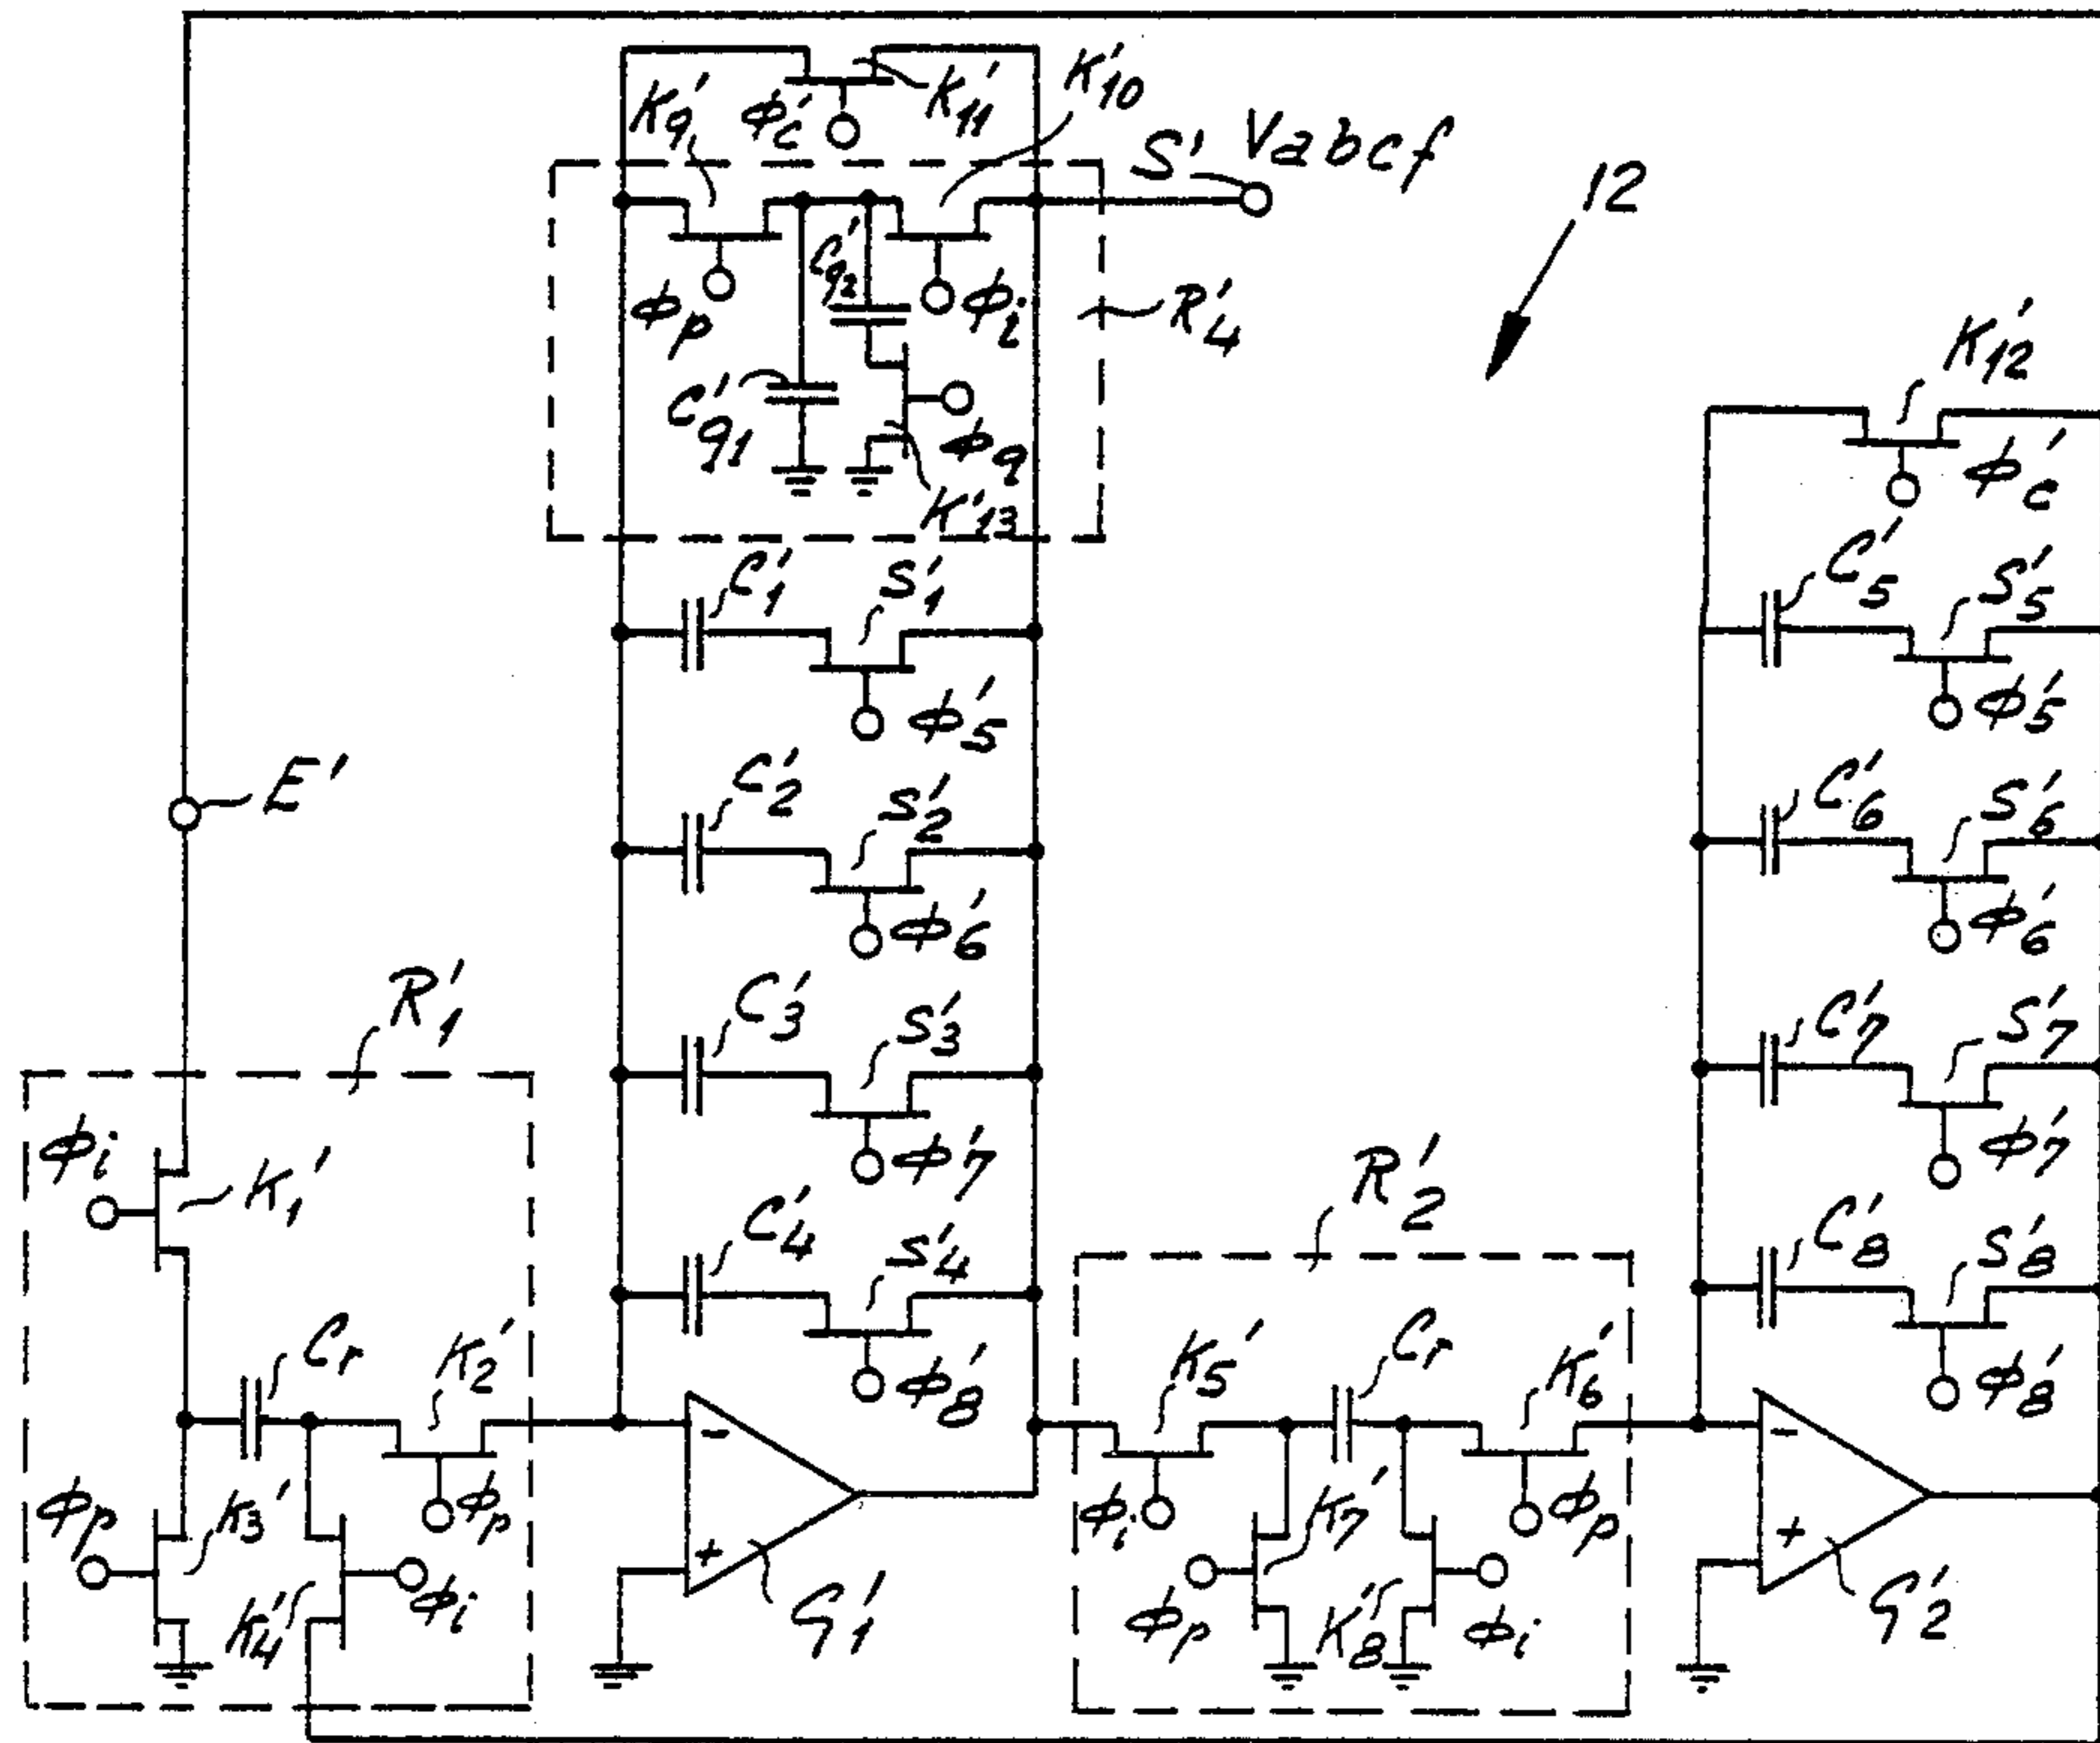 K'10
K'9
ϕ'c
K'11
S'
Vabcf
12
C'92
ϕp
ϕi
R'4
C'91
ϕ9
K'13
K'12
ϕ'c
C'1
S'1
ϕ'5
C'5
S'5
ϕ'5
E'
C'2
S'2
ϕ'6
C'6
S'6
ϕ'6
R'1
C'3
S'3
ϕ'7
C'7
S'7
ϕ'7
ϕi
K1'
R'2
C'4
S'4
ϕ'8
C'8
S'8
ϕ'8
Cr
K2'
K5'
Cr
K'6
ϕp
K3'
ϕp
-
+
G'1
K4'
ϕi
ϕi
K7'
ϕp
ϕp
K'8
ϕi
-
+
G'2